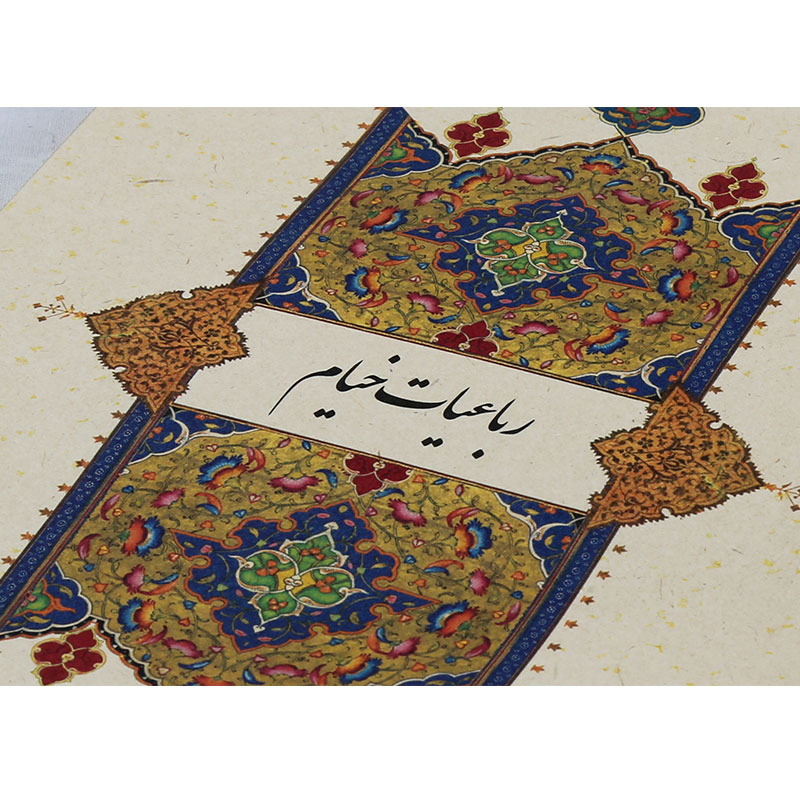 رباعیات خیام